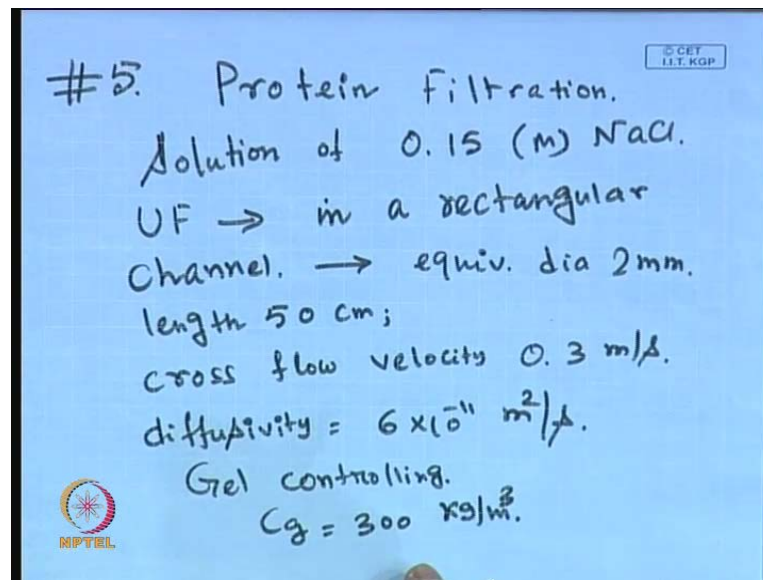 © CET
I.I.T. KGP
#5. Protein Filtration.
Solution of 0.15 (M) NaCl.
UF → in a rectangular
Channel. → equiv. dia 2mm.
length 50 cm;
cross flow velocity 0.3 m/s.
diffusivity = 6 × 10⁻¹¹ m²/s.
Gel controlling.
Cg = 300 kg/m³.
NPTEL